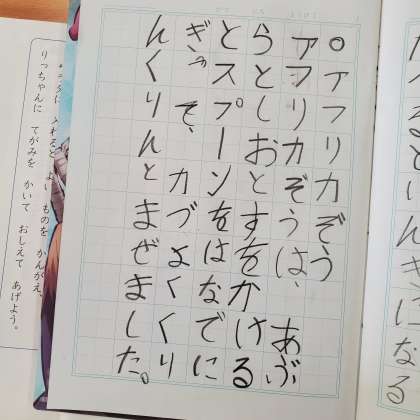 になる
○アフリカぞう
アフリカぞうは、あぶ
らとしおとすをかける
とスプーンをはなでに
ぎって、力づよくくり
んくりんとまぜました。
入れると よい ものを かんがえ、
りっちゃんに てがみを かいて おしえて あげよう。